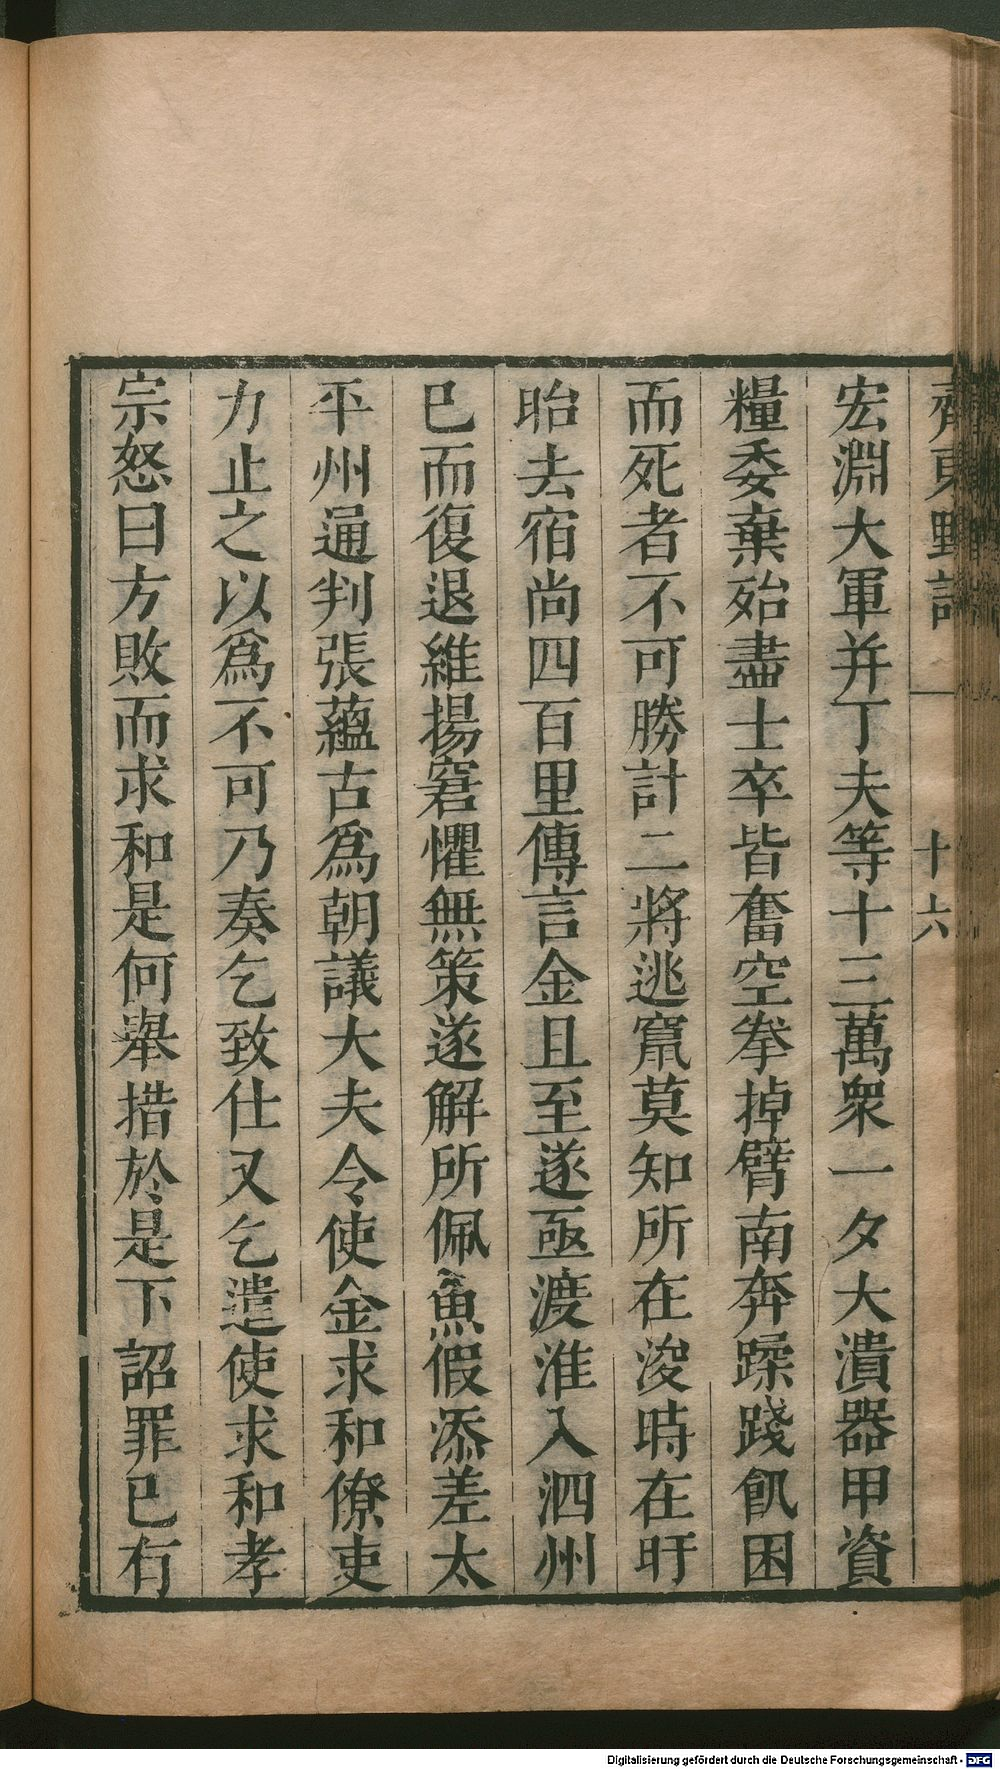 齊東野語
十六
宏淵大軍并丁夫等十三萬衆一夕大潰器甲資
糧委棄殆盡士卒皆奮空拳掉臂南奔蹂踐飢困
而死者不可勝計二將逃竄莫知所在浚時在盱
眙去宿尚四百里傳言金且至遂亟渡淮入泗州
已而復退維揚窘懼無策遂解所佩魚假添差太
平州通判張蘊古爲朝議大夫令使金求和僚吏
力止之以爲不可乃奏乞致仕又乞遣使求和孝
宗怒曰方敗而求和是何舉措於是下詔罪已有
Digitalisierung gefördert durch die Deutsche Forschungsgemeinschaft - DFG